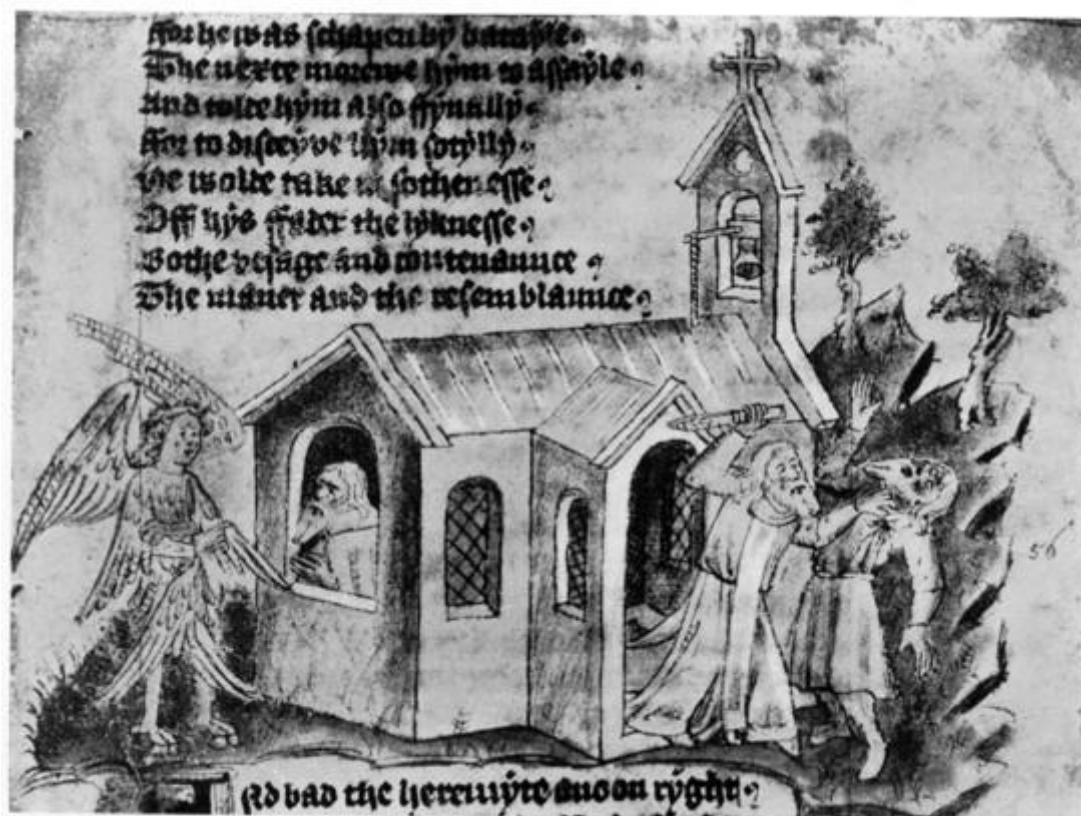 ffor he was schapen by batayle
The nexte morowe hym to assayle
And wolde hym also ffynally
ffor to disceyve hym sotylly
He wolde take in sothenesse
Off hys ffader the lyknesse
Bothe vysage and contenaunce
The maner and the resemblaunce
56
And bad the heremyte anoon ryght